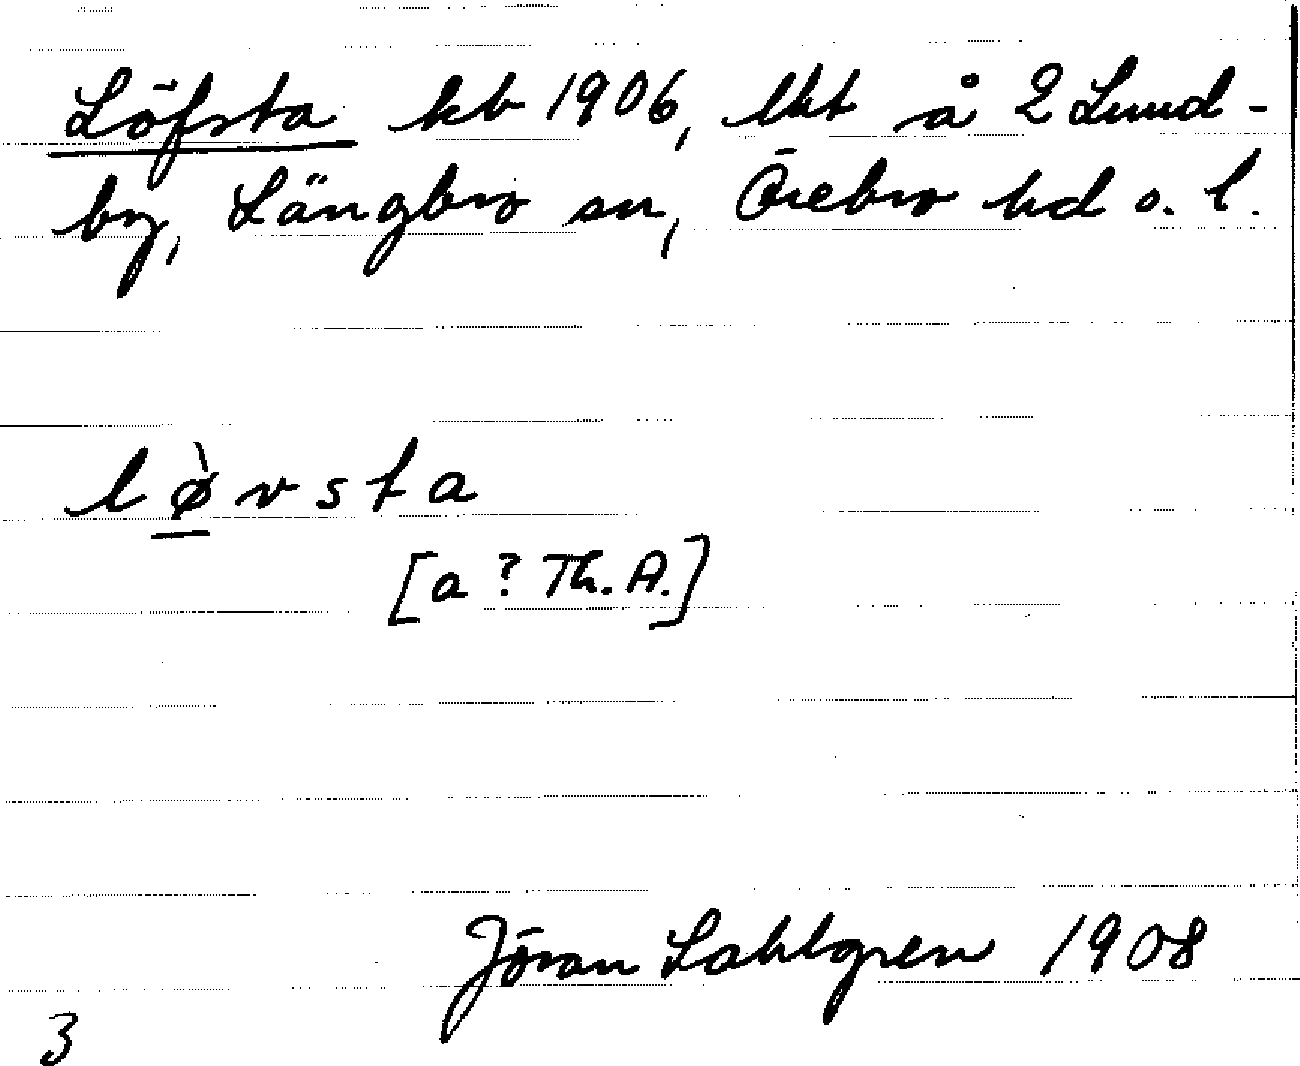 Löfsta kb 1906, lht å 2 Lund-
by, Längbro sn, Örebro hd o. l.
lø̀vsta
[a? Th. A.]
Jöran Sahlgren 1908
3